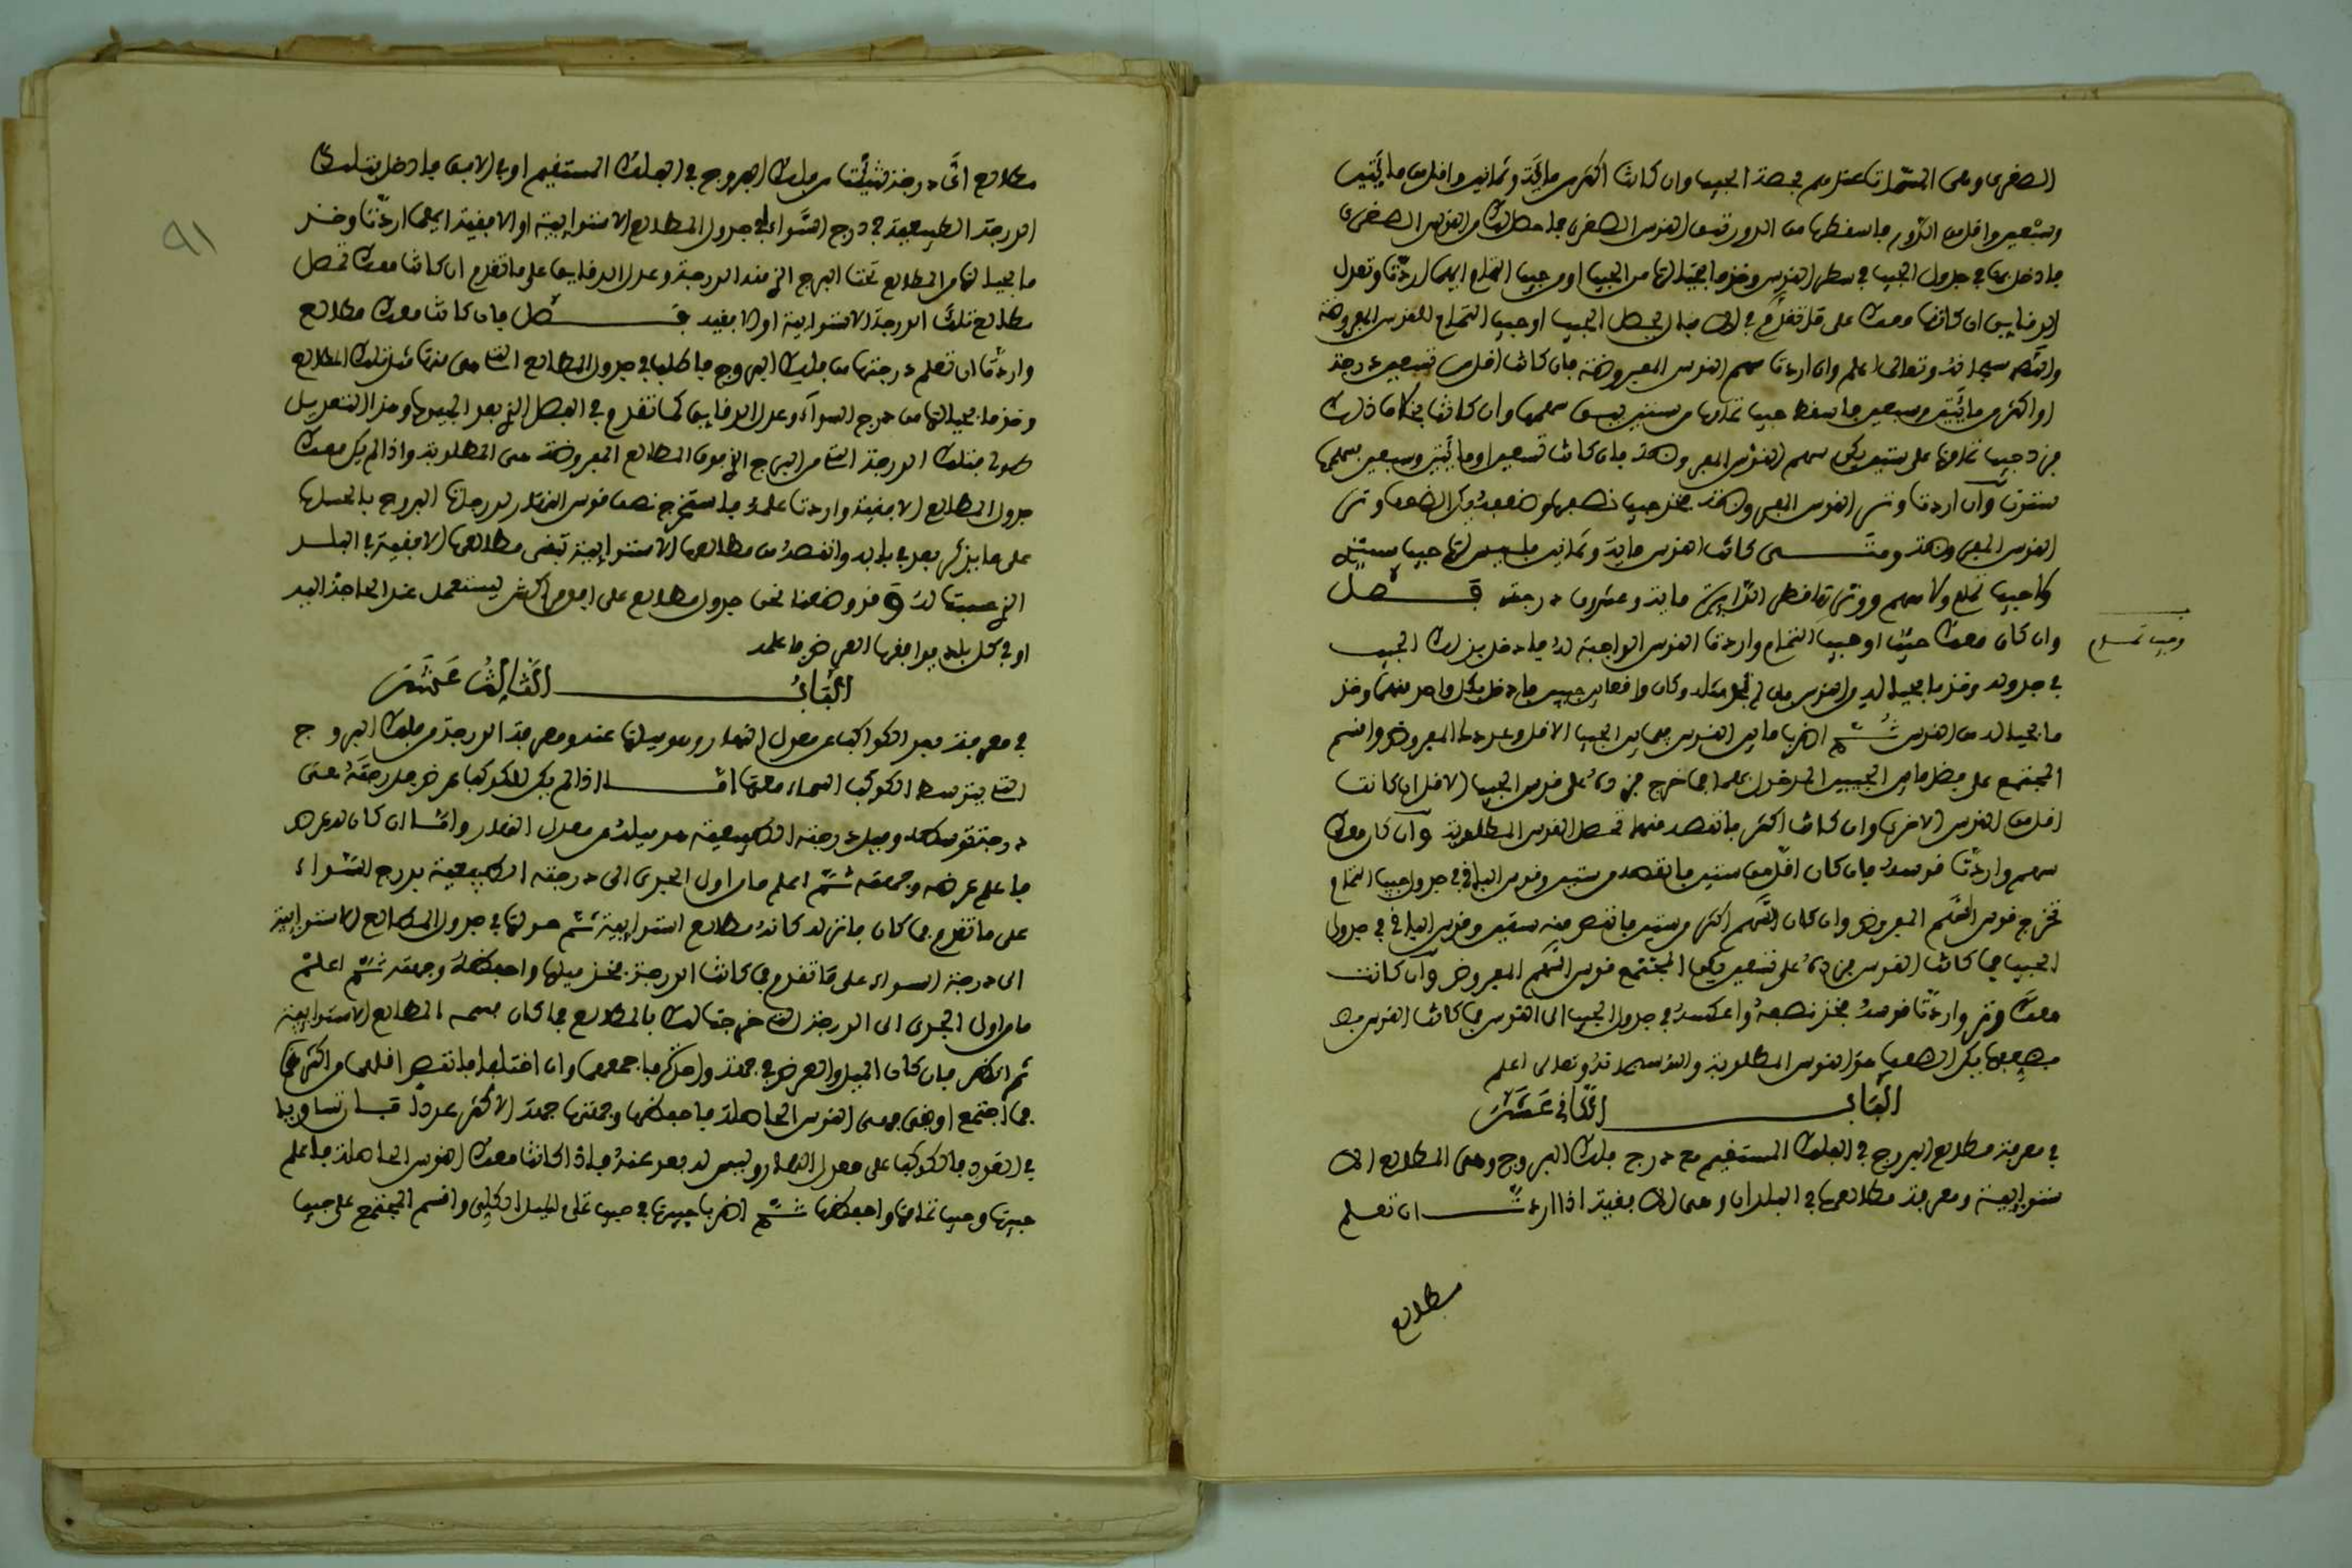 الصغرى وهى المشارة عندهم لحصة الجيب وان كانت اكثر من ماية وثمانين واقل من مايتين
وسبعين واقل من الدور فاسقطها من الدور تبق القوس الصغرى فما حصل لك من القوس الصغرى
فادخل بها في جدول الجيب في سطر القوس وخذ ما بحيالها من الجيب او من جيب التمام ايهما اردت وتعدل
الدقايق ان كانت معك على ما تقدم في فما يحصل الجيب او جيب التمام للقوس المعروضة
والله سبحانه وتعالى اعلم وان اردت سهم القوس المعروضة فان كانت اقل من تسعين درجة
او اكثر من مايتين وسبعين فاسقط جيب تمامها من ستين يبق سهمها وان كانت بخلاف ذلك
فزد جيب تمامها على ستين يكن سهم القوس المعروضة فان كانت تسعين او مايتين وسبعين فسهمها
ستون وان اردت وتر القوس المعروضة فخذ جيب نصفها وضعفه يكن الضعف وتر
القوس المعروضة ومتى كانت القوس ماية وثمانين فليس لها جيب
ولا جيب تمام ولا سهم ووترها قطر الدايرة ماية وعشرون درجة فصل
وجيب تمام
وان كان معك جيب او جيب التمام واردت القوس الواجبة له فادخل بذلك الجيب
في جدوله وخذ ما بحياله من القوس فان لم تجد مثله وكان واقعا بين جيبين فادخل بكل واحد منهما وخذ
ما بحياله من القوس ثم اضرب ما بين القوسين فيما بين الجيب الاقل وعدد المعروض واقسم
المجتمع على فضل ما بين الجيبين المدخول بهما فما خرج فزده على قوس الجيب الاقل ان كانت
اقل من القوس الاخرى وان كانت اكثر فانقصه منها تحصل القوس المطلوبة وان كان معك
سهم واردت قوسه فان كان اقل من ستين فانقصه من ستين وقوس الباقي في جدول جيب التمام
تخرج قوس السهم المعروض وان كان السهم اكثر من ستين فانقص منه ستين وقوس الباقي في جدول
الجيب فما كانت القوس فزده على تسعين يكن المجتمع قوس السهم المعروض وان كانت
معك وتر واردت قوسه فخذ نصفه واعكسه في جدول الجيب الى القوس فما كانت القوس
فضعفها يكن الضعف هو القوس المطلوبة والله سبحانه وتعالى اعلم
الباب الثاني عشر
في معرفة مطالع البروج في الفلك المستقيم مع درج فلك البروج وهى المطالع الا
ستوايية ومعرفة مطالعها في البلدان وهى الافقية اذا اردت ان تعلم
مطالع
مطالع اى درجة شيت من فلك البروج في الفلك المستقيم او في الافق فادخل بتلك
الدرجة الطبيعية في درج السواء في جدول المطالع الاستوايية او الافقية ايهما اردت وخذ
ما بحيالها من المطالع تحت البرج الذى منه الدرجة وعدل الدقايق على ما تقدم ان كانت معك تحصل
مطالع تلك الدرجة الاستوايية او الافقية فصل فان كانت معك مطالع
واردت ان تعلم درجتها من فلك البروج فاطلب في جدول المطالع التى هى منها مثل تلك المطالع
وخذ ما بحيالها من درج السواء وعدل الدقايق كما تقدم وفي الفصل الذى بعد الجيوب وهذا التعديل
فتلك الدرجة التى من البرج الذى فوق المطالع المعروضة هى المطلوبة واذا لم يكن معك
جدول المطالع الافقية واردت علمه فاستخرج نصف قوس النهار لدرجات البروج بالحساب
على ما يذكر بعد في بابه وانقصه من مطالعها الاستوايية تبقى مطالعها الافقية في البلد
الذى حسبت له وقد وضعنا نحن جدول مطالع على افق مراكش ليستعمل عند الحاجة اليه
او في كل بلد يوافقها العرض فاعلمه
الباب الثالث عشر
في معرفة بعد الكواكب عن معدل النهار وهو ميلها عنه ومعرفة الدرجة من فلك البروج
التى يتوسط الكوكب السماء معها اما اذا لم يكن للكوكب عرض فدرجته هى
درجة توسطه وميل درجته الطبيعية هو ميله عن معدل النهار واما ان كان له عرض
فاعلم عرضه وجهته ثم اعلم ما من اول الجدى الى درجته الطبيعية بدرج السواء
على ما تقدم فما كان فانزله كانه مطالع استوايية ثم حولها في جدول المطالع الاستوايية
الى درجة السواء على ما تقدم فما كانت الدرجة فخذ ميلها واحفظه وجهته ثم اعلم
ما من اول الجدى الى الدرجة التى خرجت لك بالمطالع فما كان فسمه المطالع الاستوايية
ثم انظر فان كان الميل والعرض في جهة واحدة فاجمعهما وان اختلفا فانقص اقلهما من اكثرهما
فما اجتمع او بقى فهى القوس الحاصلة فاحفظها وجهتها جهة الاكثر عددا فان تساويا
في القدر فالكوكب على معدل النهار وليس له بعد عنه فاذا كانت معك القوس الحاصلة فاعلم
جيبها وجيب تمامها واحفظها ثم اضرب جيبها في جيب تمام الميل الكلى واقسم المجتمع على جيب
٩١